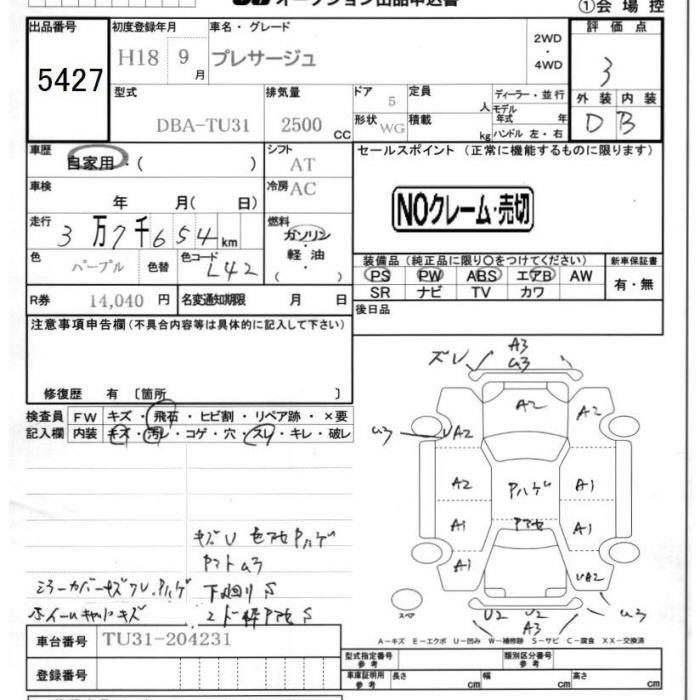 オークション出品申込書
①会場控
出品番号 初度登録年月 車名・グレード 評価点
5427 H18 9月 プレサージュ 2WD・4WD 3
型式 排気量 ドア 定員 ディーラー・並行 外装 内装
DBA-TU31 2500CC 5 人 モデル年式 年 D B
形状 WG 積載 kg ハンドル 左・右
車歴 シフト セールスポイント (正常に機能するものに限ります)
自家用・( ) AT
車検 冷房 AC
年 月( 日) NOクレーム・売切
走行 燃料
3万7千654km ガソリン・軽油
色 色替 色コード 装備品 (純正品に限り○をつけてください) 新車保証書
パープル L42 PS PW ABS エアB AW 有・無
SR ナビ TV カワ
R券 14,040円 名変通知期限 月 日 後日品
注意事項申告欄 (不具合内容等は具体的に記入して下さい)
修復歴 有 〔箇所 〕
検査員 FW キズ・飛石・ヒビ割・リペア跡・×要
記入欄 内装 キズ・汚レ・コゲ・穴・スレ・キレ・破レ
ズレ A3
U3
A2 A2
U3 UA2
A2 Pハゲ A1
A1 A1
A1 UA2
U3
スペア
U2 U2
A3
下廻りS
A-キズ E-エクボ U-凹み W-補修跡 S-サビ C-腐食 XX-交換済
車台番号 TU31-204231
登録番号
型式指定番号 参考 類別区分番号 参考
車庫証明用 参考 長さ cm 幅 cm 高さ cm